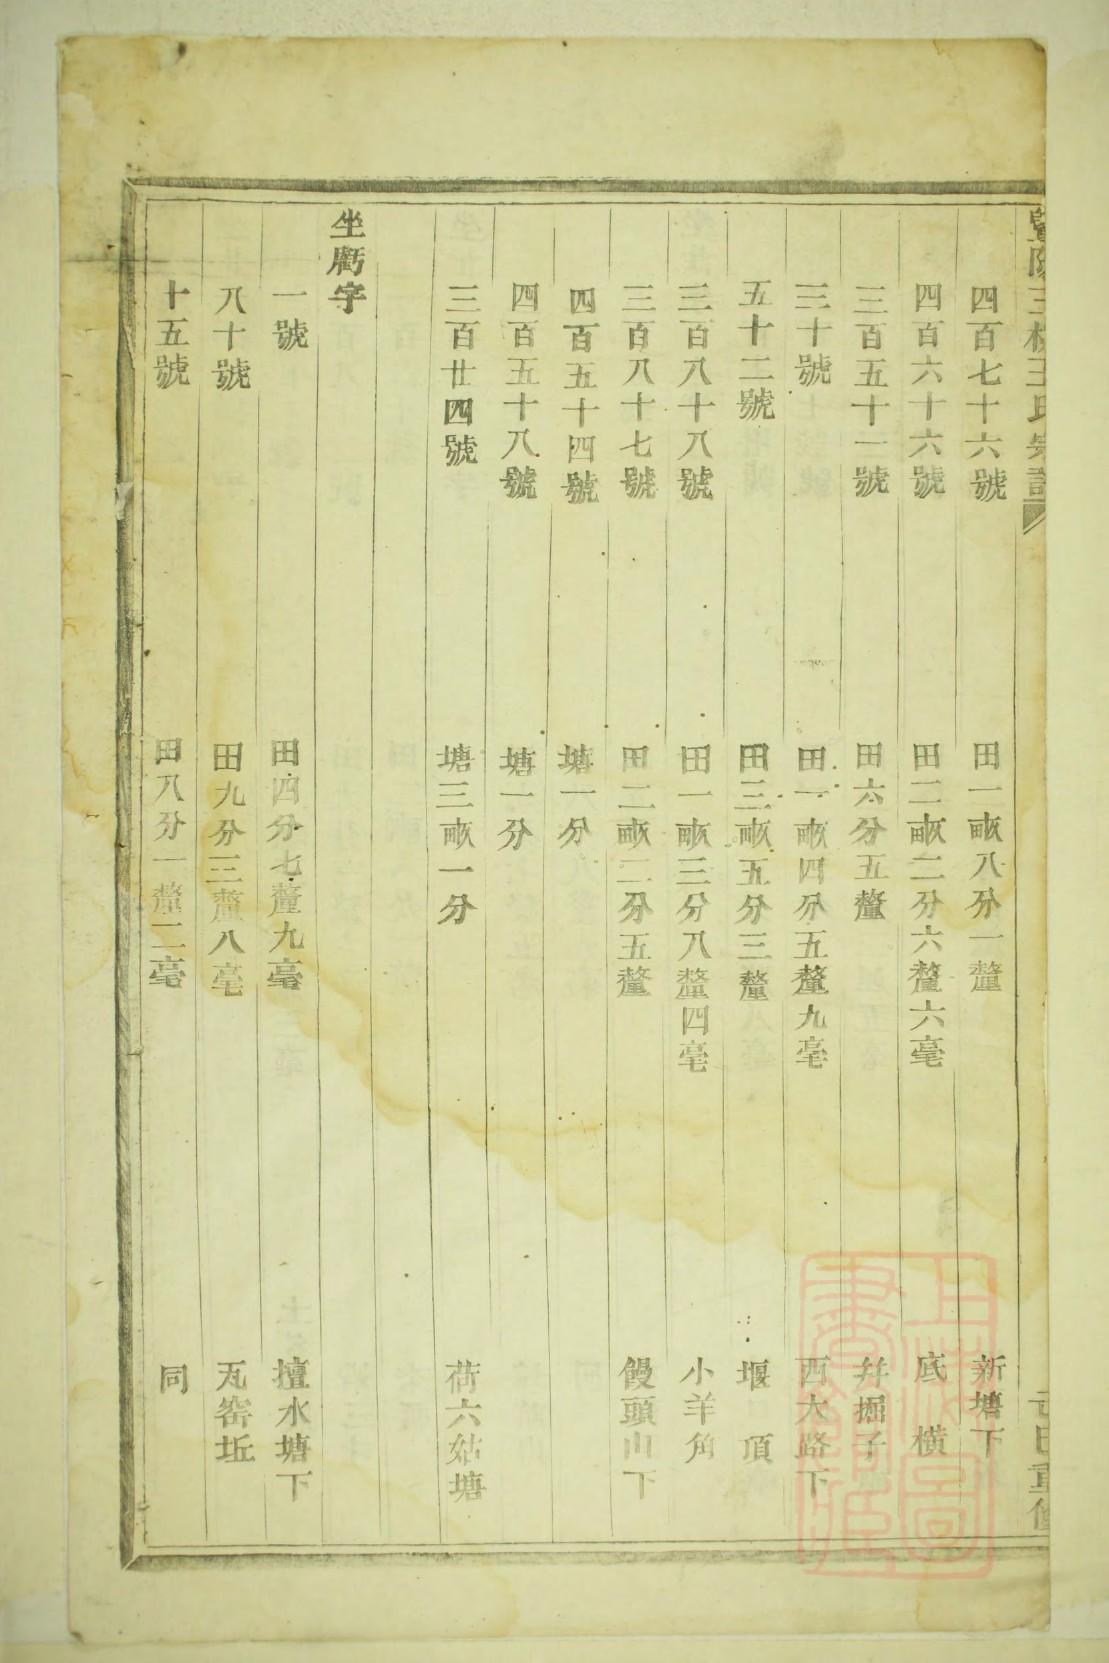 四百七十六號 田一畝八分一釐 新塘下
四百六十六號 田二畝二分六釐六毫 底橫
三百五十一號 田六分五釐 幷掘子
三十號 田一畝四分五釐九毫 西大路下
五十二號 田三畝五分三釐 堰頂
三百八十八號 田一畝三分八釐四毫 小羊角
三百八十七號 田二畝二分五釐 饅頭山下
四百五十四號 塘一分
四百五十八號 塘一分
三百廿四號 塘三畝一分 荷六姑塘
坐虧字
一號 田四分七釐九毫 擅水塘下
八十號 田九分三釐八毫 瓦窑坵
十五號 田八分一釐二毫 同
上海圖書館藏